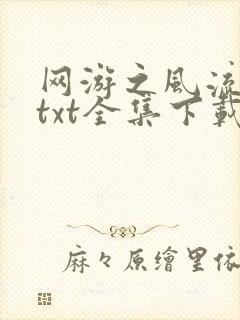 网游之风流
txt全集下载
麻々原繪里依